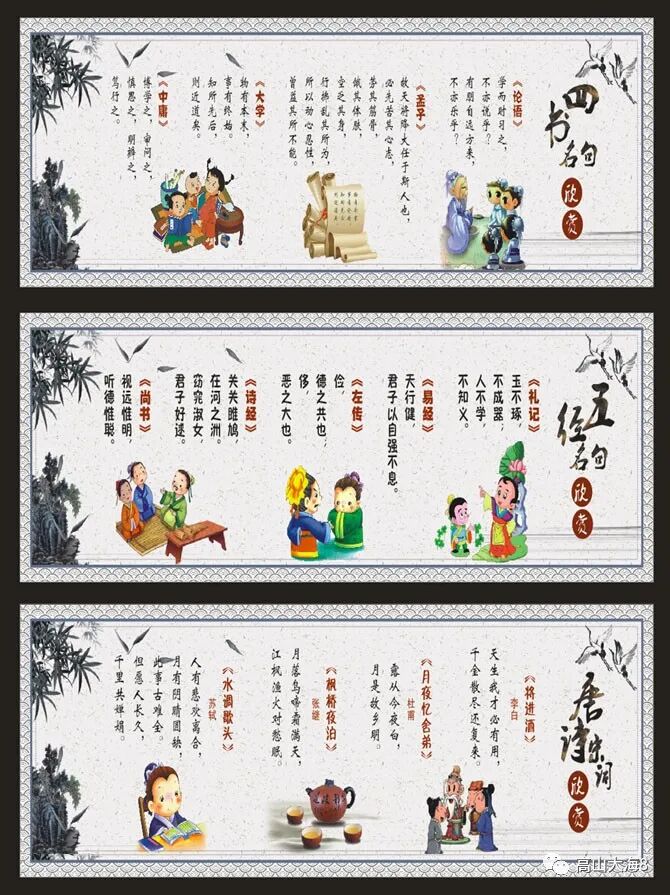 四书名句
欣赏
《论语》
学而时习之，
不亦说乎？
有朋自远方来，
不亦乐乎？
《孟子》
故天将降大任于斯人也，
必先苦其心志，
劳其筋骨，
饿其体肤，
空乏其身，
行拂乱其所为，
所以动心忍性，
曾益其所不能。
《大学》
物有本末，
事有终始。
知所先后，
则近道矣。
《中庸》
博学之，审问之，
慎思之，明辨之，
笃行之。
五经名句
欣赏
《礼记》
玉不琢，
不成器，
人不学，
不知义。
《易经》
天行健，
君子以自强不息。
《左传》
俭，
德之共也，
侈，
恶之大也。
《诗经》
关关雎鸠，
在河之洲。
窈窕淑女，
君子好逑。
《尚书》
视远惟明，
听德惟聪。
唐诗宋词
欣赏
《将进酒》
李白
天生我才必有用，
千金散尽还复来。
《月夜忆舍弟》
杜甫
露从今夜白，
月是故乡明。
《枫桥夜泊》
张继
月落乌啼霜满天，
江枫渔火对愁眠。
《水调歌头》
苏轼
人有悲欢离合，
月有阴晴圆缺，
此事古难全。
但愿人长久，
千里共婵娟。
高山大海8